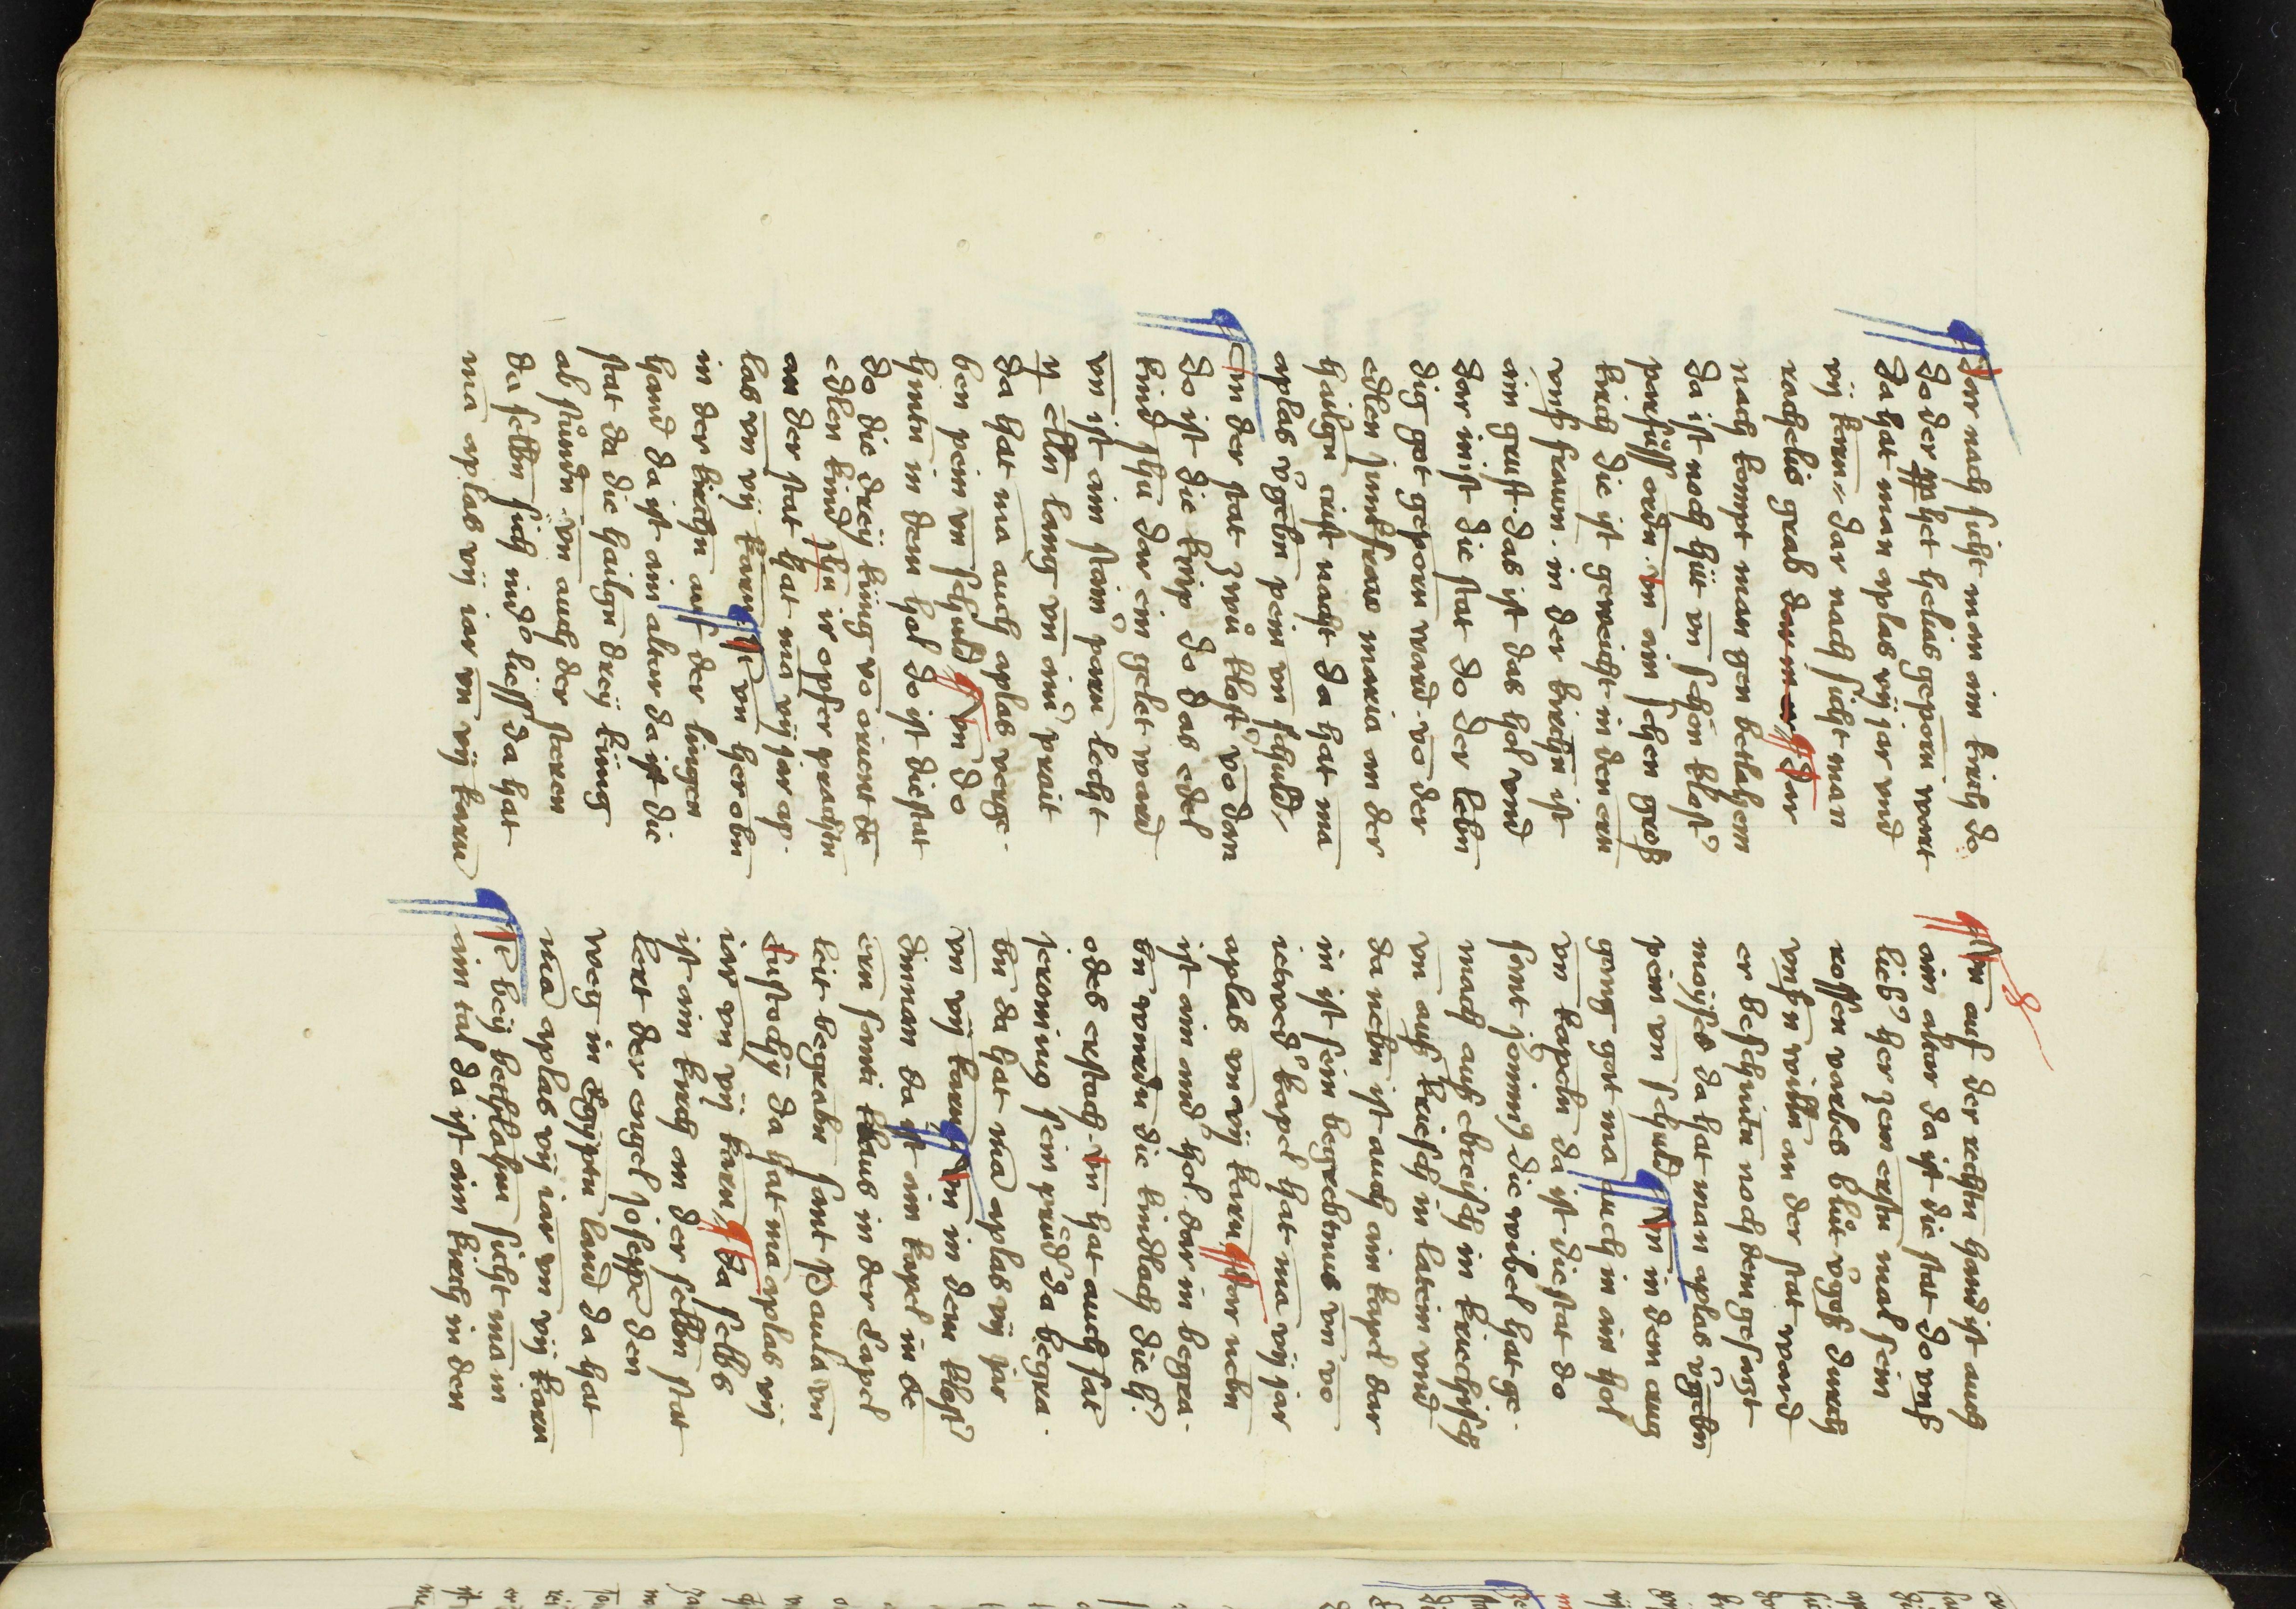 Dar nach sicht man ain kirch do
do der pphet helias geporn wart
Da hat man aplas vij jar vnd
vij karn dar nach sicht man
rachelis grab dar
nach kompt man gen betlahem
da ist noch hüt vn schön klost
parfüss ordn vn ain schen groß
kirch die ist geweicht in der ern
vnß frawn in der kirchn ist
ain gruft das ist das hol vnd
dar in ist die stat do der lebn
dig got geporn ward vo der
edlen junkfraw maria an der
hailgn crist nacht da hat ma
aplas vgebn pein vn schuld
In der stat zwü kloft vo dan
do ist die krip do das edel
kind jhu dar ein gelet ward
vn ist ain stain parn locht
ij elln lang vn ain prait
da hat ma auch aplas verge
ben pein vn schuld Vn do
hintn in dem hol do ist die stat
do die dreÿ küng vo orient de
edlen kind jhu ir opfer prachtn
an der stat hat ma vij jar ap
las vn vij karn It vn her obn
in der kirchn auf der lingen
hand da ist ain altar da ist die
stat da die hailgn dreÿ küng
ab stundn vn auch der steren
da selbn sich nider ließ da hat
ma aplas vij iar vn vij karn
Vn auf der rechtn hand ist auch
ain altar da ist die stat do vnß
lieb her zem erstn mal sein
rossen varbes blüt vgoß durch
vnßn willn an der stat ward
er beschnitn noch dem gesaczt
moÿses da hat man aplas vgebn
pein vn schuld Vn in dem aug
gang got ma auch in ain hol
vn kapeln da ist die stat do
sant jeronimg die wibel hat ge
mach auß ebreisch in kriechisch
vn auß kriesch in latein vnd
da nebn ist auch ain kapel dar
in ist sein begrebnus vn vo
ietwed kapel hat ma vij jar
aplas vn vij karn Dar nebn
ist ain and hol dar in begra
bn wurdn die kindlach die h
odes erstach vn hat auch sat
jeroning sein prüd da begra
bn da hat ma aplas vij jar
vn vij karn Vn in dem klost
dinnan da ist ain kapel in de
ern santi klaus in der Capel
leit begrabn sant Paula vn
Eustochÿ da hat ma aplas vij
iar vn vij karn Da selbs
ist ain kirch an der selbn stat
lert der engel joseppe den
weg in Egÿptn land da hat
ma aplas vij iar vn vij karn
It beÿ bethlahm sicht ma in
aim tal da ist ain kirch in den